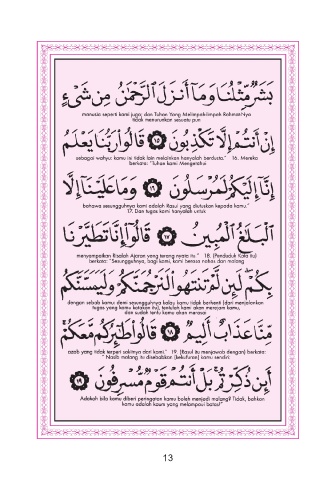 بَشَرٌ مِّثْلُنَا وَمَآ أَنزَلَ ٱلرَّحْمَٰنُ مِن شَىْءٍ
manusia seperti kami juga; dan Tuhan Yang Melimpah-limpah Rahmat-Nya
tidak menurunkan sesuatu pun
إِنْ أَنتُمْ إِلَّا تَكْذِبُونَ ١٥ قَالُوا۟ رَبُّنَا يَعْلَمُ
sebagai wahyu; kamu ini tidak lain melainkan hanyalah berdusta." 16. Mereka
berkata: "Tuhan kami Mengetahui
إِنَّآ إِلَيْكُمْ لَمُرْسَلُونَ ١٦ وَمَا عَلَيْنَآ إِلَّا
bahawa sesungguhnya kami adalah Rasul yang diutuskan kepada kamu."
17. Dan tugas kami hanyalah untuk
ٱلْبَلَٰغُ ٱلْمُبِينُ ١٧ قَالُوٓا۟ إِنَّا تَطَيَّرْنَا
menyampaikan Risalah Ajaran yang terang nyata itu." 18. (Penduduk Kota itu)
berkata: "Sesungguhnya, bagi kami, kami berasa nahas dan malang
بِكُمْ لَئِن لَّمْ تَنتَهُوا۟ لَنَرْجُمَنَّكُمْ وَلَيَمَسَّنَّكُم
dengan sebab kamu demi sesungguhnya kalau kamu tidak berhenti (dari menjalankan
tugas yang kamu katakan itu), tentulah kami akan merejam kamu,
dan sudah tentu kamu akan merasai
مِّنَّا عَذَابٌ أَلِيمٌ ١٨ قَالُوا۟ طَٰٓئِرُكُم مَّعَكُمْ
azab yang tidak terperi sakitnya dari kami." 19. (Rasul itu menjawab dengan) berkata:
" Nasib malang itu disebabkan (kekufuran) kamu sendiri.
أَئِن ذُكِّرْتُم بَلْ أَنتُمْ قَوْمٌ مُّسْرِفُونَ ١٩
Adakah bila kamu diberi peringatan kamu boleh menjadi malang? Tidak, bahkan
kamu adalah kaum yang melampaui batas!"
13